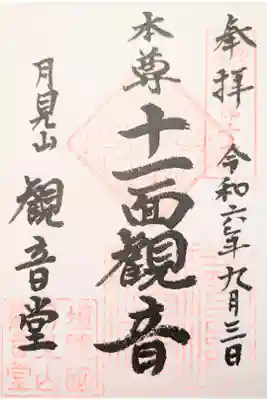 奉拝 令和六年九月三日
本尊 十一面観音
月見山 観音堂